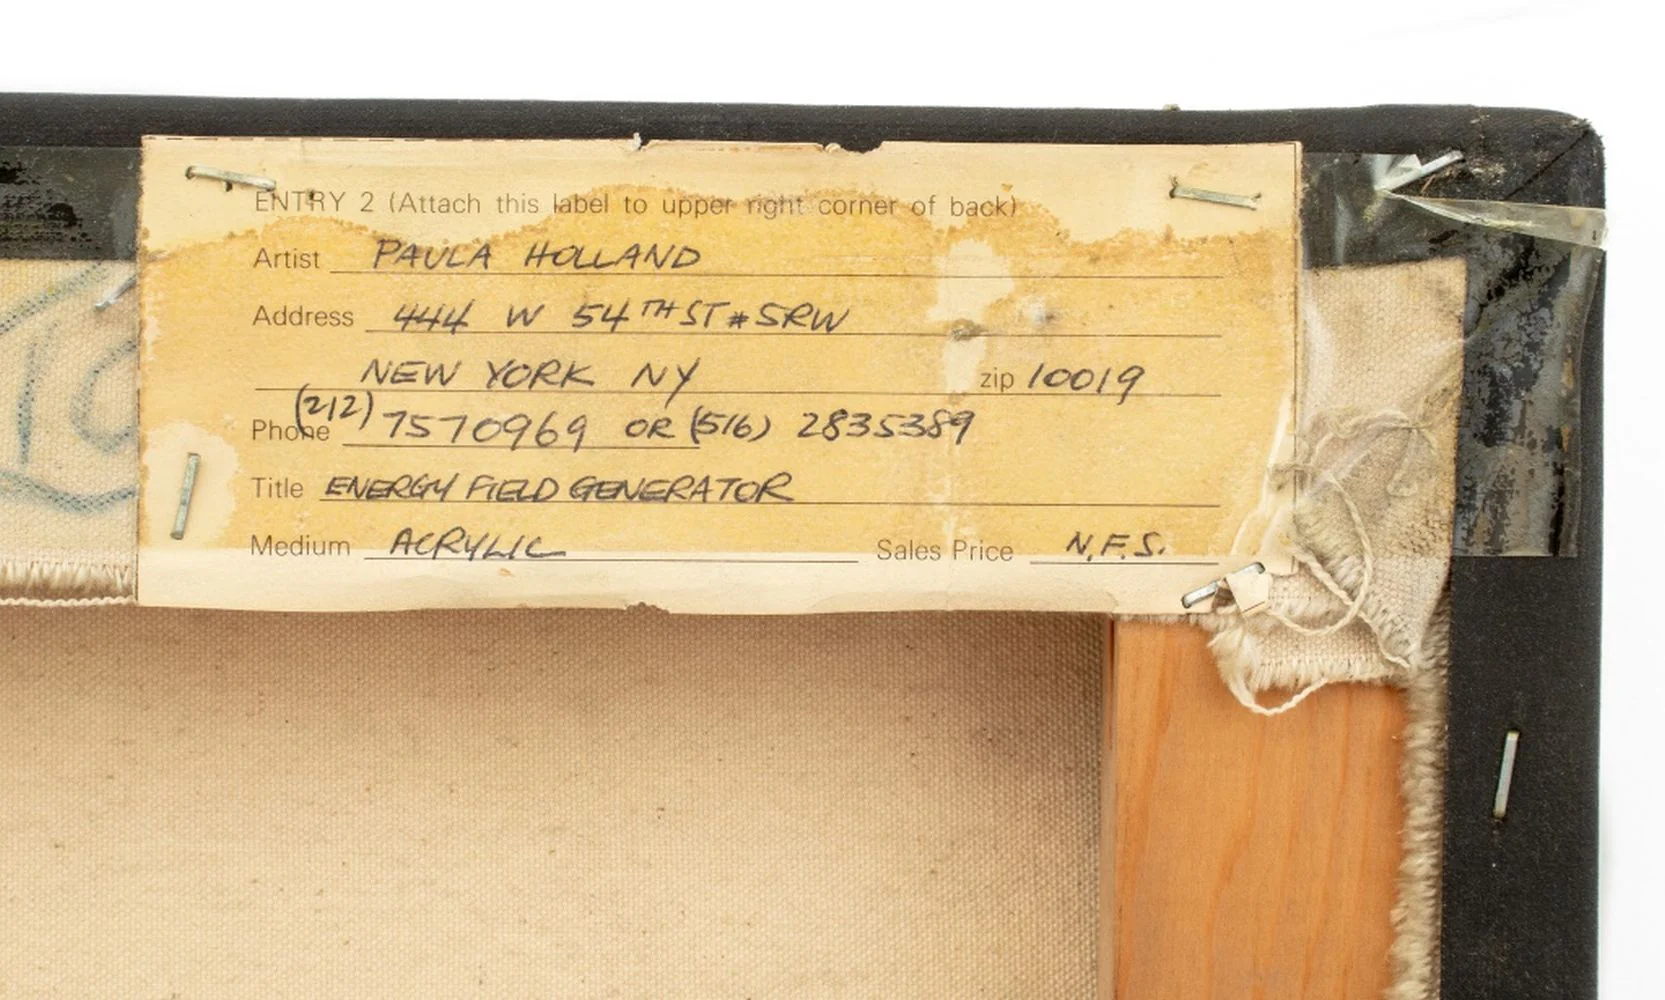 ENTRY 2 (Attach this label to upper right corner of back)
Artist PAULA HOLLAND
Address 444 W 54TH ST #5RW
NEW YORK NY zip 10019
Phone (212) 7570969 OR (516) 2835389
Title ENERGY FIELD GENERATOR
Medium ACRYLIC Sales Price N.F.S.